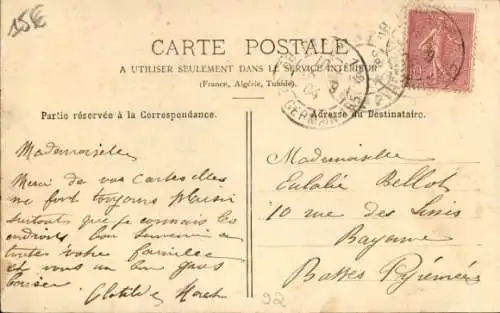 15€
CARTE POSTALE
A UTILISER SEULEMENT DANS LE SERVICE INTÉRIEUR
(France, Algérie, Tunisie).
Partie réservée à la Correspondance.
Mademoiselle
Merci de vos cartes elles
me font toujours plaisir
surtout que je connais les
endroits bon souvenir a
toutes votre famille
et vous un bon gros
baiser
Clotilde
Adresse du Destinataire.
Mademoiselle
Eulalie Bellot
10 rue des
Bayonne
Basses Pyrénées
92